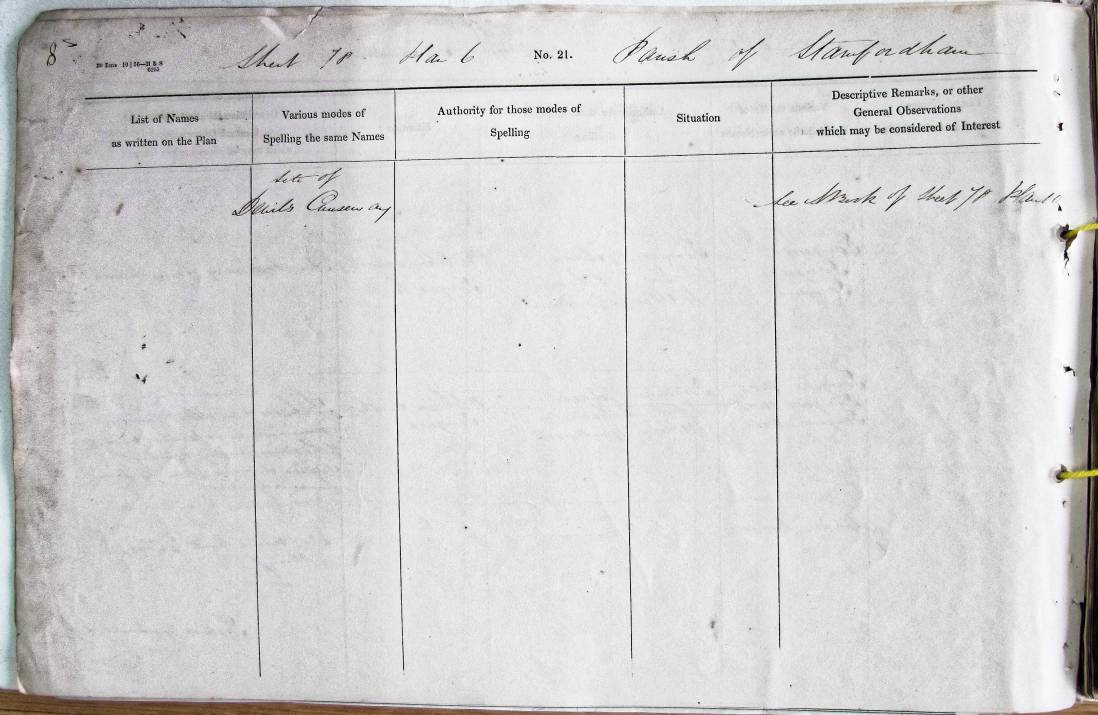 8
Sheet 78 Plan 6 No. 21. Parish of Stamfordham
List of Names
as written on the Plan
Various modes of
Spelling the same Names
Authority for those modes of
Spelling
Situation
Descriptive Remarks, or other
General Observations
which may be considered of Interest
Site of
Devils Causeway
See of Sheet 78 Plan